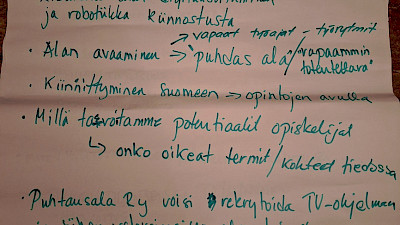 ja robotiikka kiinnostusta
vapaat työajat - työrytmit
• Alan avaaminen → "puhdas ala"/"vapaammin
toteutettava"
• Kiinnittyminen Suomeen → opintojen avulla
• Millä tavoitamme potentiaalit opiskelijat
↳ onko oikeat termit/kohteet tiedossa
• Puhtausala Ry voisi rekrytoida TV-ohjelmaan